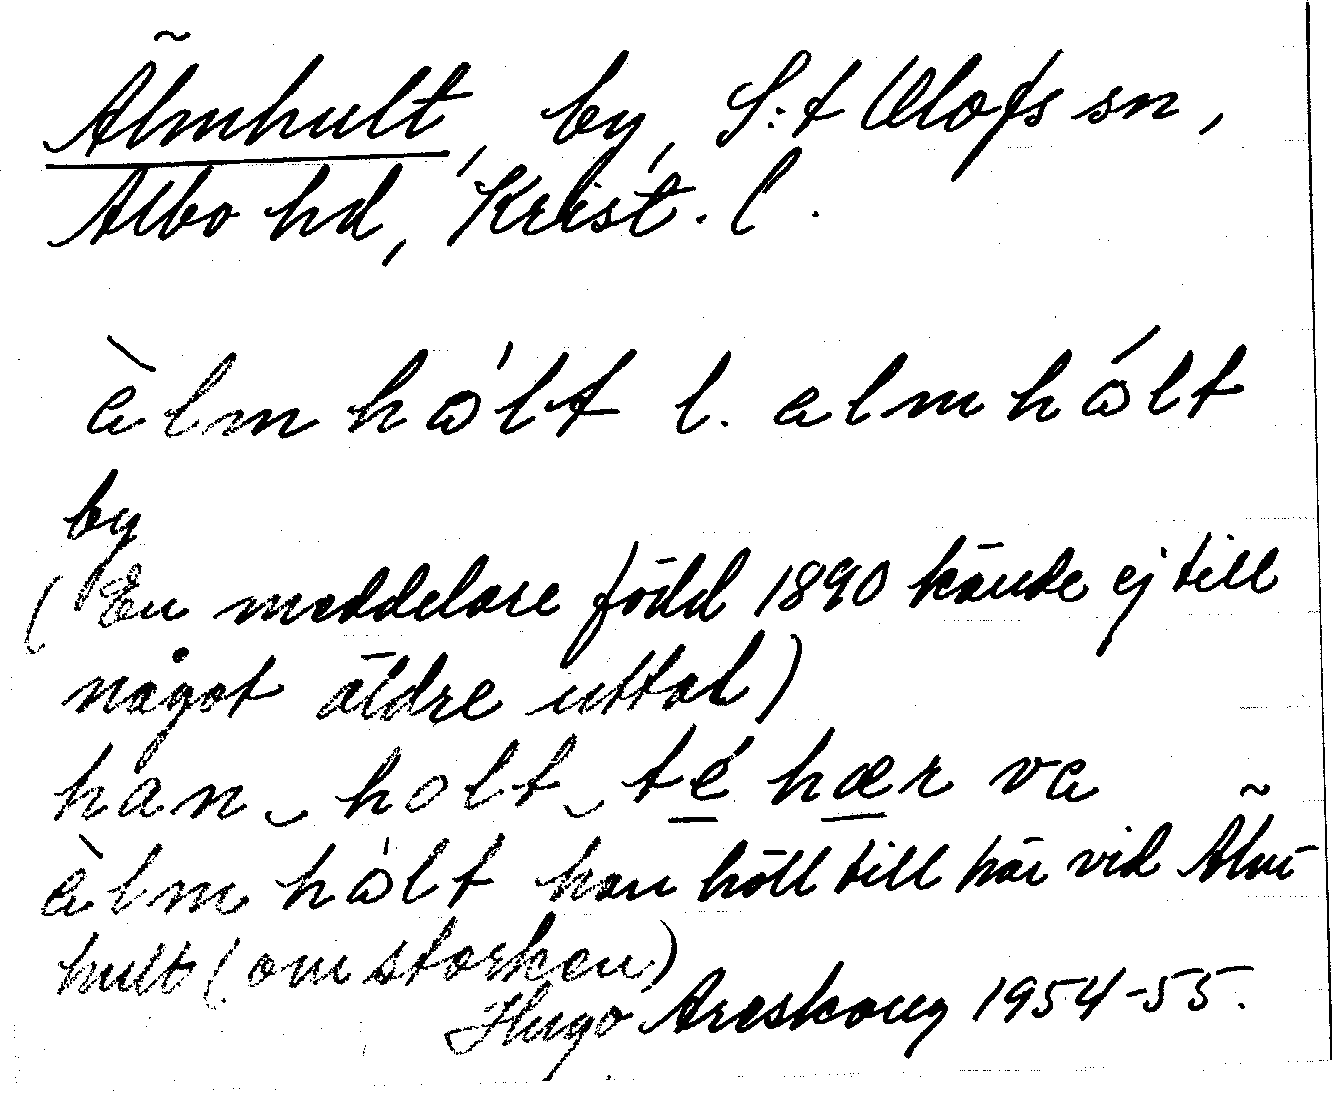 Älmhult, by, S:t Olofs sn,
Albo hd, Krist. l.
èlmhɷ̍lt l. elmhɷ́lt
by
(En meddelare född 1890 kände ej till
något äldre uttal)
han‿holt‿té hær ve
èlmhɷ̍lt han höll till här vid Älm-
hult (om storken)
Hugo Areskoug 1954-55.